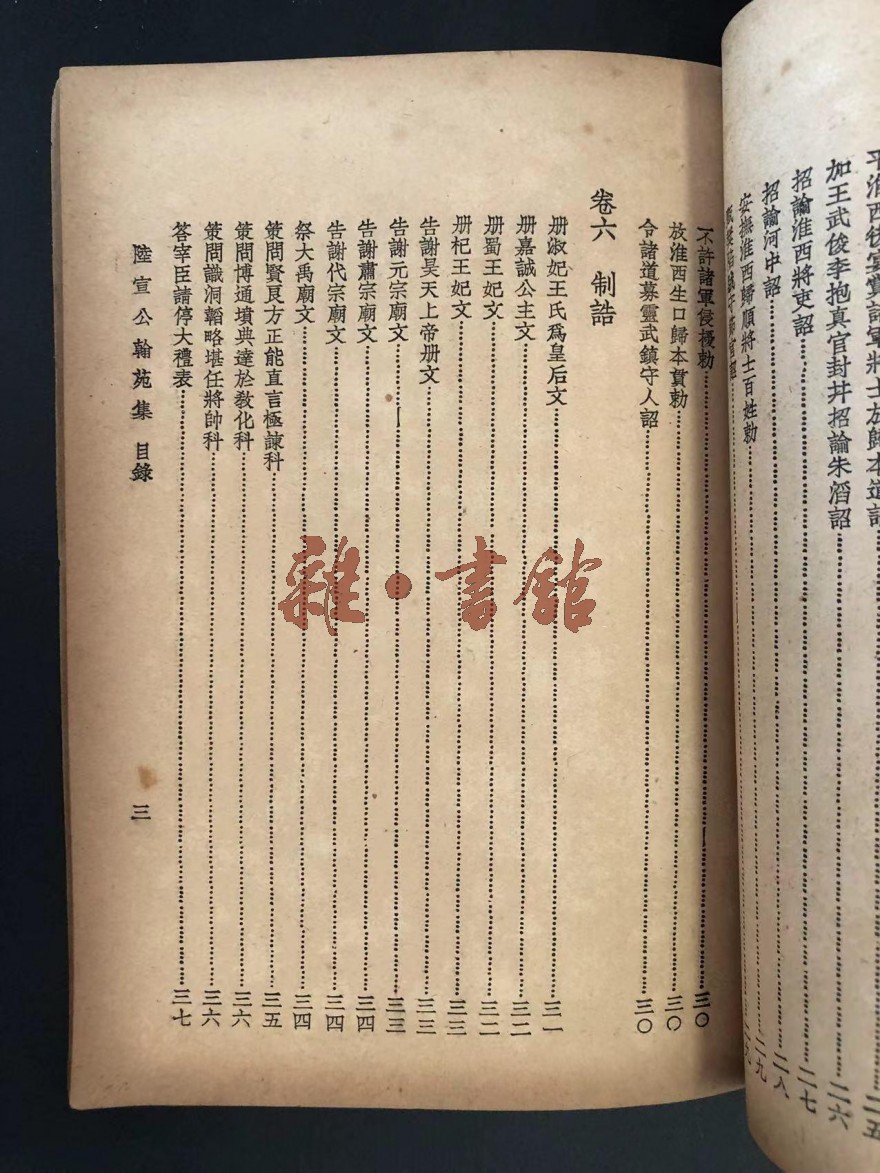 平淮西後宴賞諸軍將士放歸本道詔……二五
加王武俊李抱真官封幷招諭朱滔詔……二六
招諭淮西將吏詔……二七
招諭河中詔……二八
安撫淮西歸順將士百姓勅……二九
不許諸軍侵擾勅……三〇
放淮西生口歸本貫勅……三〇
令諸道募靈武鎮守人詔……三〇
卷六 制誥
册淑妃王氏爲皇后文……三一
册嘉誠公主文……三二
册蜀王妃文……三二
册杞王妃文……三三
告謝昊天上帝册文……三三
告謝元宗廟文……三三
告謝肅宗廟文……三四
告謝代宗廟文……三四
祭大禹廟文……三四
策問賢良方正能直言極諫科……三五
策問博通墳典達於敎化科……三六
策問識洞韜略堪任將帥科……三六
答宰臣請停大禮表……三七
陸宣公翰苑集 目錄 三
雜·書館